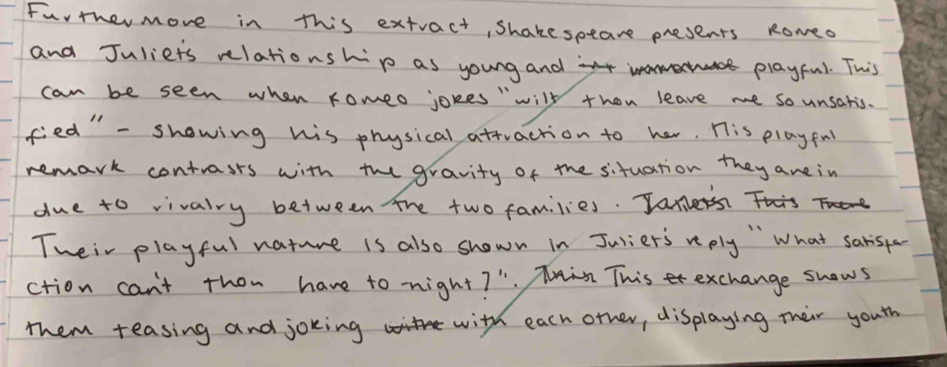 Furthermore in this extract, Shakespeare presents Romeo
and Juliet's relationship as young and playful. This
can be seen when Romeo jokes "wilt thou leave me so unsatis-
fied" - showing his physical attraction to her. His playful
remark contrasts with the gravity of the situation they are in
due to rivalry between the two families. This There
Their playful nature is also shown in Juliet's reply "What satisfa-
ction can't thou have to-night?". This exchange shows
them teasing and joking with each other, displaying their youth